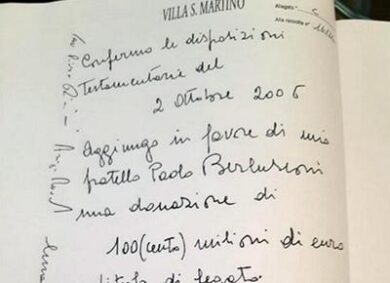 VILLA S. MARTINO
Allegato
Alla raccolta n°
Confermo le disposizioni
Testamentarie del
2 Ottobre 2006
Aggiungo in favore di mio
fratello Paolo Berlusconi
una donazione di
100 (cento) milioni di euro
titolo di legato.